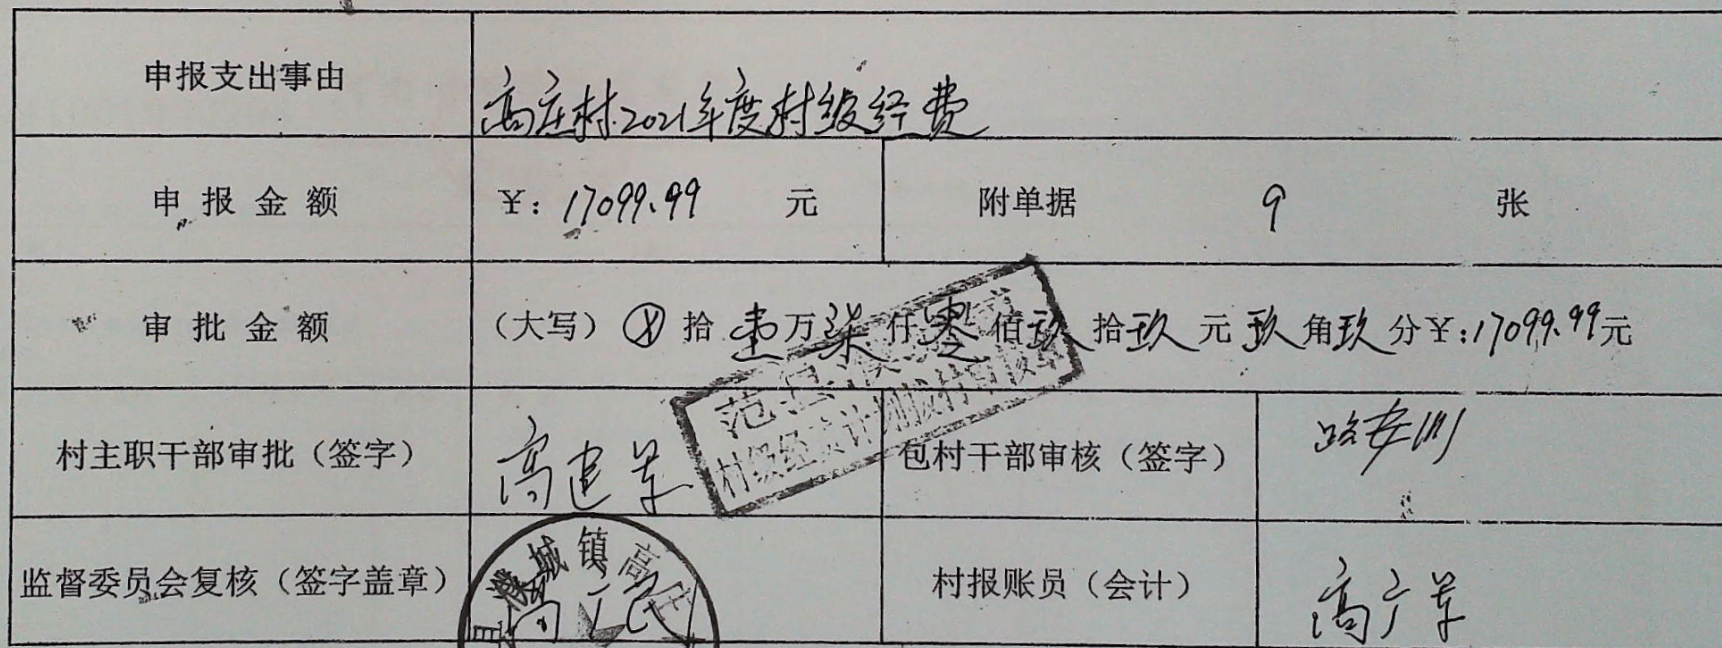 申报支出事由 高庄村2021年度村级经费
申报金额 ¥:17099.99 元 附单据 9 张
审批金额 (大写) ⊗ 拾 壹万柒仟零佰玖拾玖元玖角玖分¥:17099.99元
村级经费计划拨付审核章
村主职干部审批(签字) 高建军 包村干部审核(签字) 路安川
监督委员会复核(签字盖章) 濮城镇高庄 村报账员(会计) 高广军